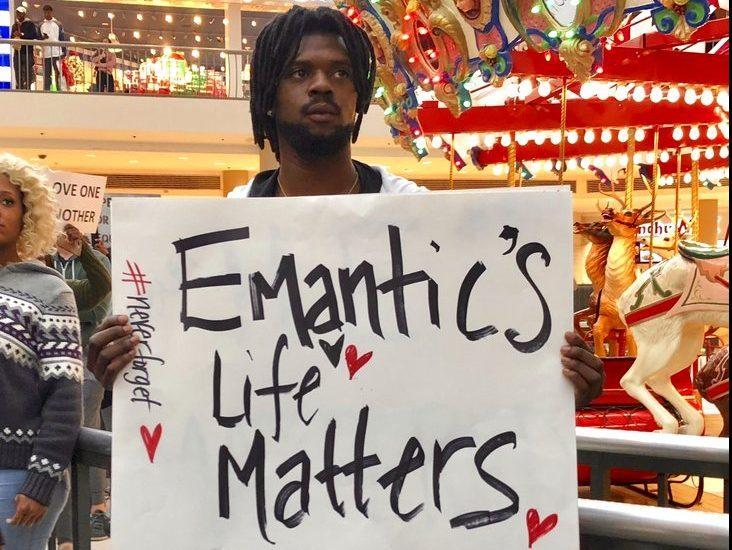 OVE ONE
NOTHER
#neverforget
Emantic's
Life
Matters